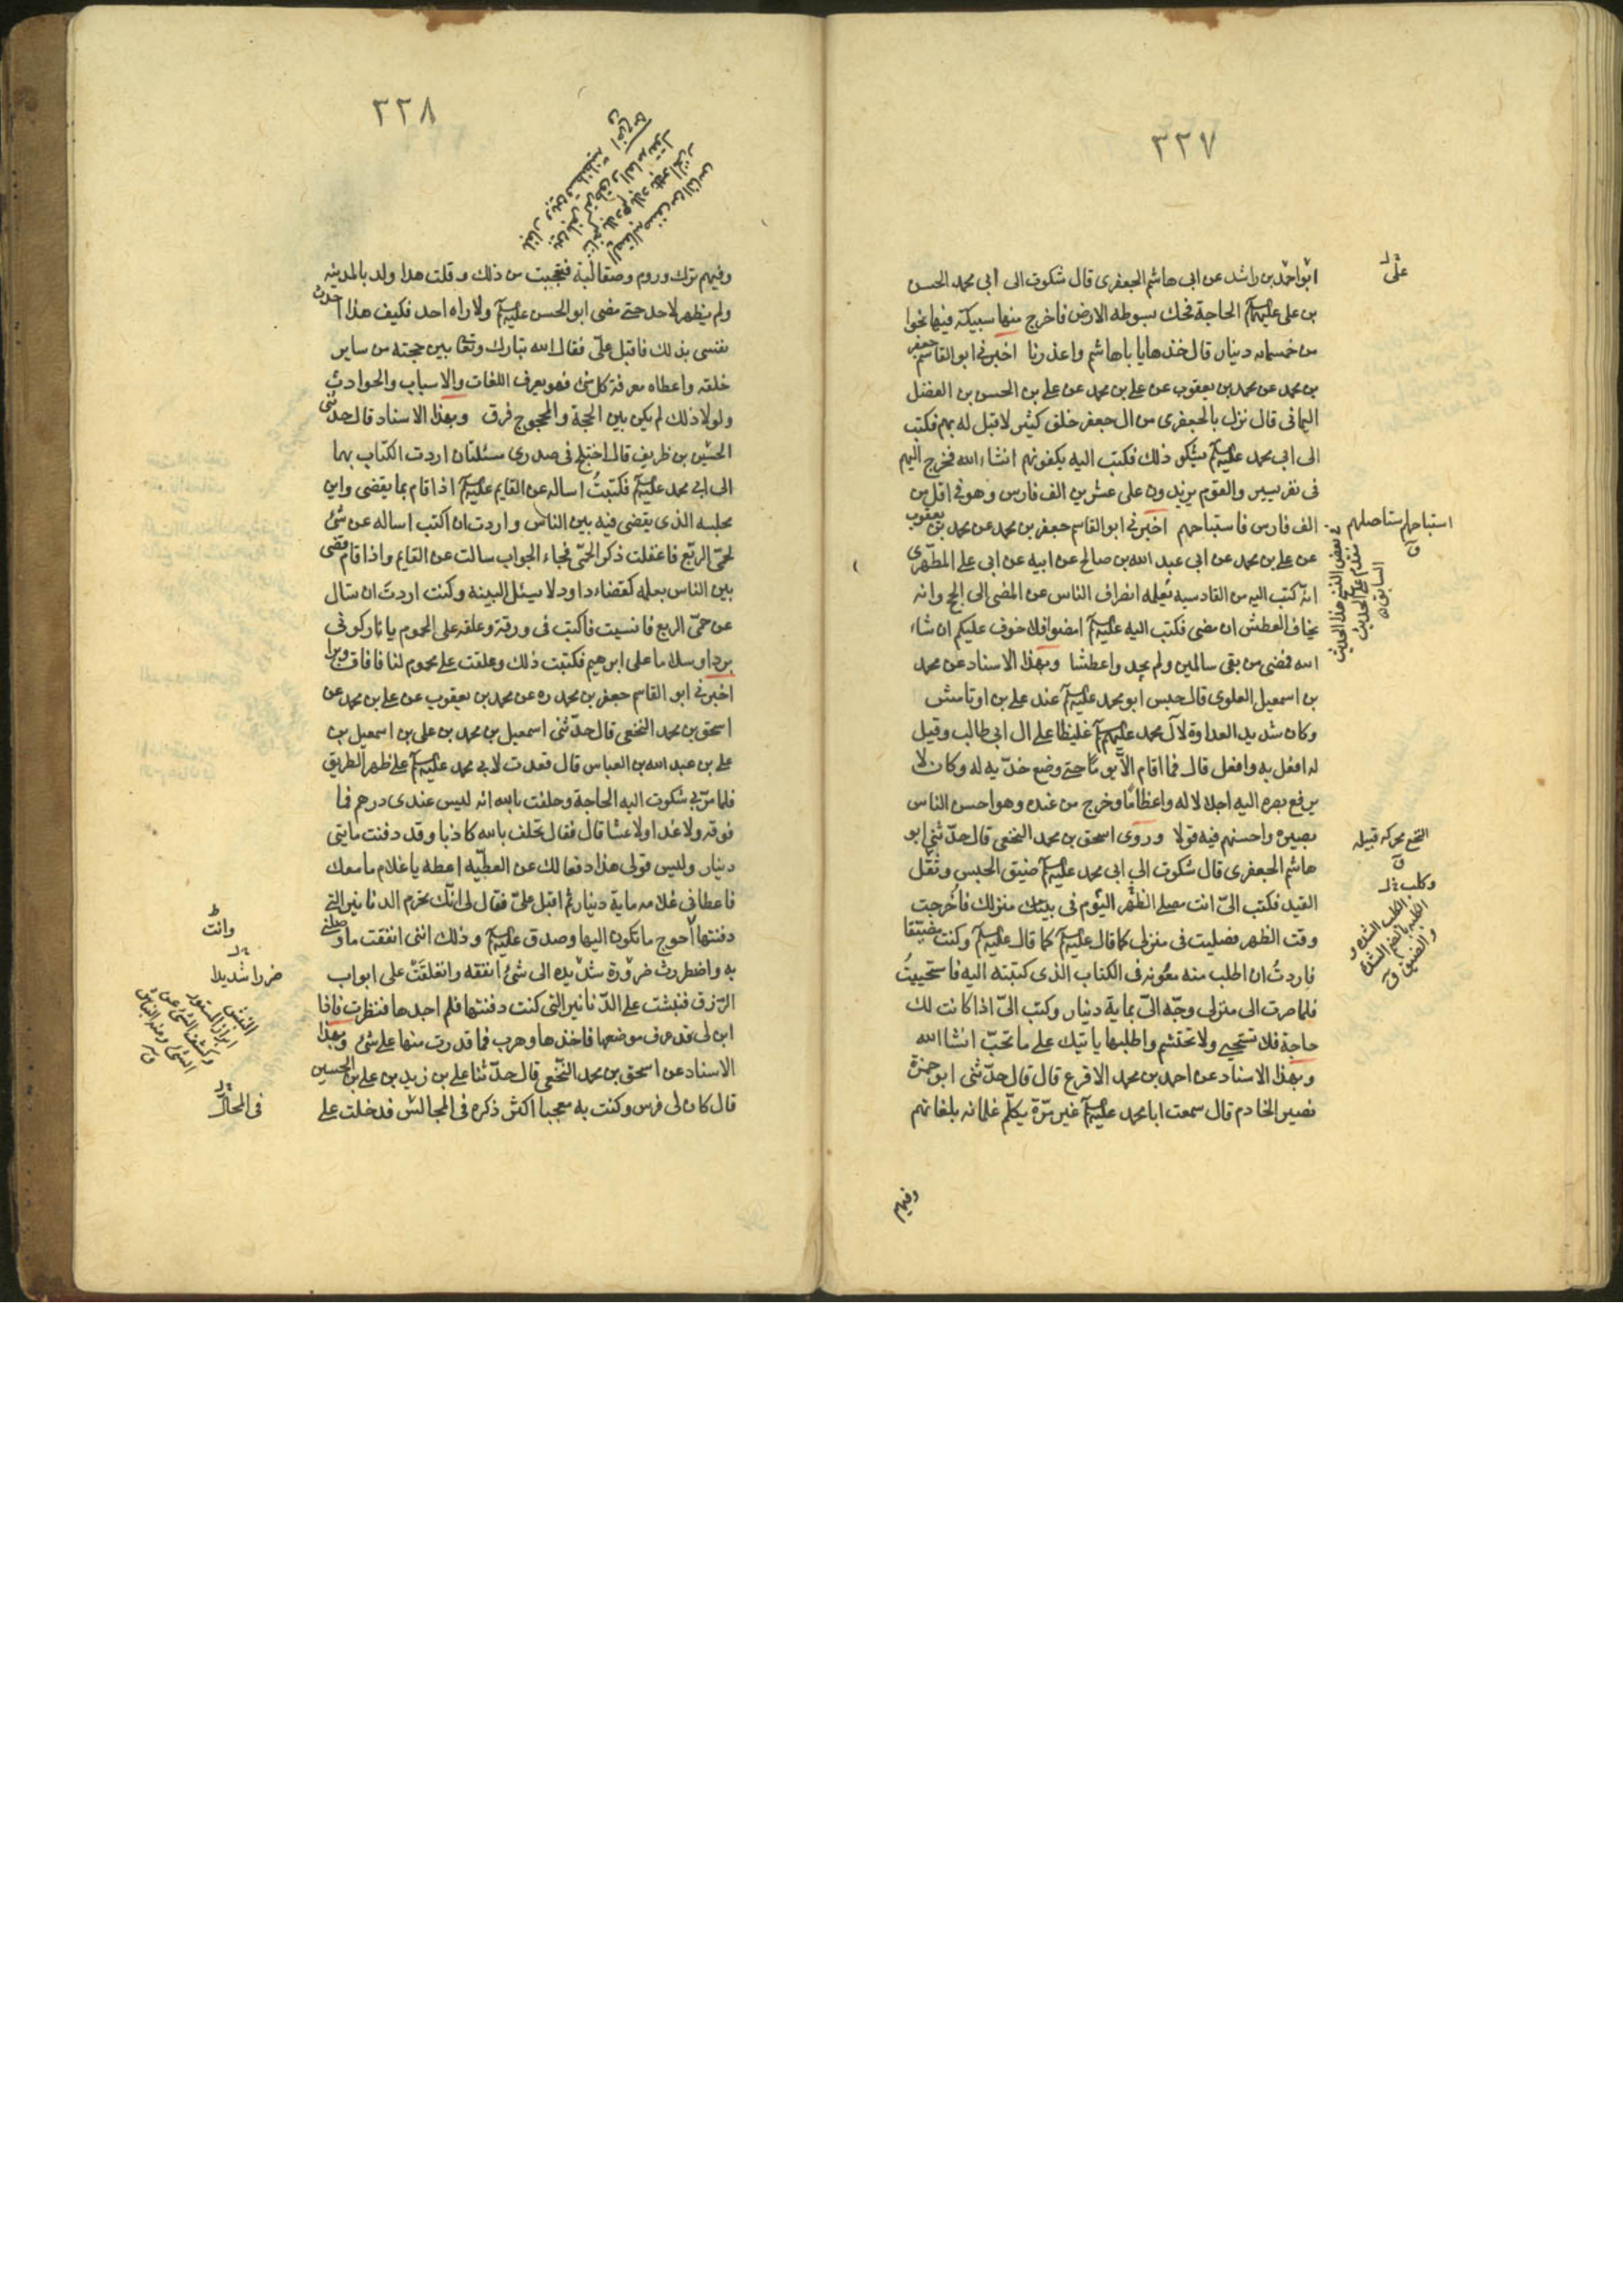 ٣٣٧
ابو احمد بن راشد عن ابى هاشم الجعفرى قال شكوت الى ابى محمد الحسن
بن على عليهما السلم الحاجة فحك بسوطه الارض فاخرج منها سبيكة فيها نحوا
من خمسمائه دينار قال خذها يا با هاشم واعذرنا اخبرنى ابو القاسم جعفر
بن محمد عن محمد بن يعقوب عن على بن محمد عن على بن الحسن بن الفضل
اليمانى قال نزل بالجعفرى من ال جعفر خلق كثير لا قبل له بهم فكتب
الى ابى محمد عليه السلم يشكو ذلك فكتب اليه يكفونهم انشاء الله فخرج اليهم
فى نفر يسير والقوم يزيدون على عشرين الف فارس وهو فى اقل من
الف فارس فاستباحهم اخبرنى ابو القاسم جعفر بن محمد عن محمد بن يعقوب
عن على بن محمد عن ابى عبد الله بن صالح عن ابيه عن ابى على المطهرى
انه كتب اليه من القادسيه يعلمه انصراف الناس عن المضى الى الحج وانه
يخاف العطش ان مضى فكتب اليه عليه السلم امضوا فلا خوف عليكم ان شاء
الله فمضى من بقى سالمين ولم يجدوا عطشا وبهذا الاسناد عن محمد
بن اسمعيل العلوى قال حبس ابو محمد عليه السلم عند على بن اوتامش
وكان شديد العداوة لآل محمد عليهم السلم غليظا على ال ابى طالب وقيل
له افعل به وافعل قال فما اقام الا يوما حتى وضع خديه له وكان لا
يرفع بصره اليه اجلالا له واعظاما وخرج من عنده وهو احسن الناس
بصيرة واحسنهم فيه قولا وروى اسحق بن محمد النخعى قال حدثنى ابو
هاشم الجعفرى قال شكوت الى ابى محمد عليه السلم ضيق الحبس وثقل
القيد فكتب الىّ انت مصلى الظهر اليوم فى بيتك منزلك فاخرجت
وقت الظهر فصليت فى منزلى كما قال عليه السلم كما قال عليه السلم وكنت مضيقا
فاردتُ ان اطلب منه معونه فى الكتاب الذى كتبته اليه فاستحييتُ
فلما صرت الى منزلى وجّه الىّ بماية دينار وكتب الىّ اذا كانت لك
حاجة فلا تستحيى ولا تحتشم واطلبها ياتيك على ما تحبّ انشا الله
وبهذا الاسناد عن احمد بن محمد الاقرع قال قال حدّثنى ابو حمزة
نصير الخادم قال سمعت ابا محمد عليه السلم غير مرّة يكلّم غلمانه بلغاتهم
وفيهم
على
استباحهم استاصلهم ق
فى بعض النسخ هذا الحديث
مقدم على الحديث
السابق
النخع محركه قبيله
ق
وكلب
والضيق ق
٣٣٨
وفيهم ترك وروم وصقالبة فتعجبت من ذلك وقلت هذا ولد بالمدينه
ولم يظهر لاحد حتى مضى ابو الحسن عليه السلم ولا راه احد فكيف هذا احدث
نفسى بذلك فاقبل علىّ فقال الله تبارك وتعا بين حجته من ساير
خلقه واعطاه معرفة كل شئ فهو يعرف اللغات والاسباب والحوادث
ولولا ذلك لم يكن بين الحجة والمحجوج فرق وبهذا الاسناد قال حدثنى
الحسين بن ظريف قال اختلج فى صدرى مسئلتان اردت الكتاب بهما
الى ابى محمد عليه السلم فكتبتُ اساله عن القايم عليه السلم اذا قام بما يقضى واين
مجلسه الذى يقضى فيه بين الناس واردت ان اكتب اساله عن شئ
لحمّى الربع فاغفلت ذكر الحمّى فجاء الجواب سالت عن القايم واذا قام قضى
بين الناس بعلمه كقضاء داود لا يسئل البينة وكنت اردت ان تسال
عن حمّى الربع فانسيت فاكتب فى ورقة وعلقه على المحموم يا نار كونى
بردا وسلاما على ابرهيم فكتبت ذلك وعلقت على محموم لنا فافاق وبرا
اخبرنى ابو القاسم جعفر بن محمد ره عن محمد بن يعقوب عن على بن محمد عن
اسحق بن محمد النخعى قال حدّثنى اسمعيل بن محمد بن على بن اسمعيل بن
على بن عبد الله بن العباس قال قعدت لابى محمد عليه السلم على ظهر الطريق
فلما مرّ بى شكوت اليه الحاجة وحلفت بالله انه ليس عندى درهم فما
فوقه ولا غدا ولا عشا قال فقال تحلف بالله كاذبا وقد دفنت مايتى
دينار وليس قولى هذا دفعا لك عن العطيّه اعطه يا غلام ما معك
فاعطانى غلامه ماية دينار ثم اقبل علىّ فقال لى انك تحرم الدنانير التى
دفنتها احوج ما تكون اليها وصدق عليه السلم وذلك اننى انفقت ما وصلنى
به واضطررت ضرورة شديده الى شئ انفقه وانغلقت على ابواب
الرّزق فنبشت على الدّنانير التى كنت دفنتها فلم اجدها فنظرت فاذا
ابن لى قد عرف موضعها فاخذها وهرب فما قدرت منها على شئ وبهذا
الاسناد عن اسحق بن محمد النّخعى قال حدّثنا على بن زيد بن على بن الحسين
قال كان لى فرس وكنت به معجبا اكثر ذكره فى المجالس فدخلت على
وانت
ضررا شديدا
النبش
ابراز المستور
وكشف الشئ عن
الشئ ومنه النباش
ق
فى المحال